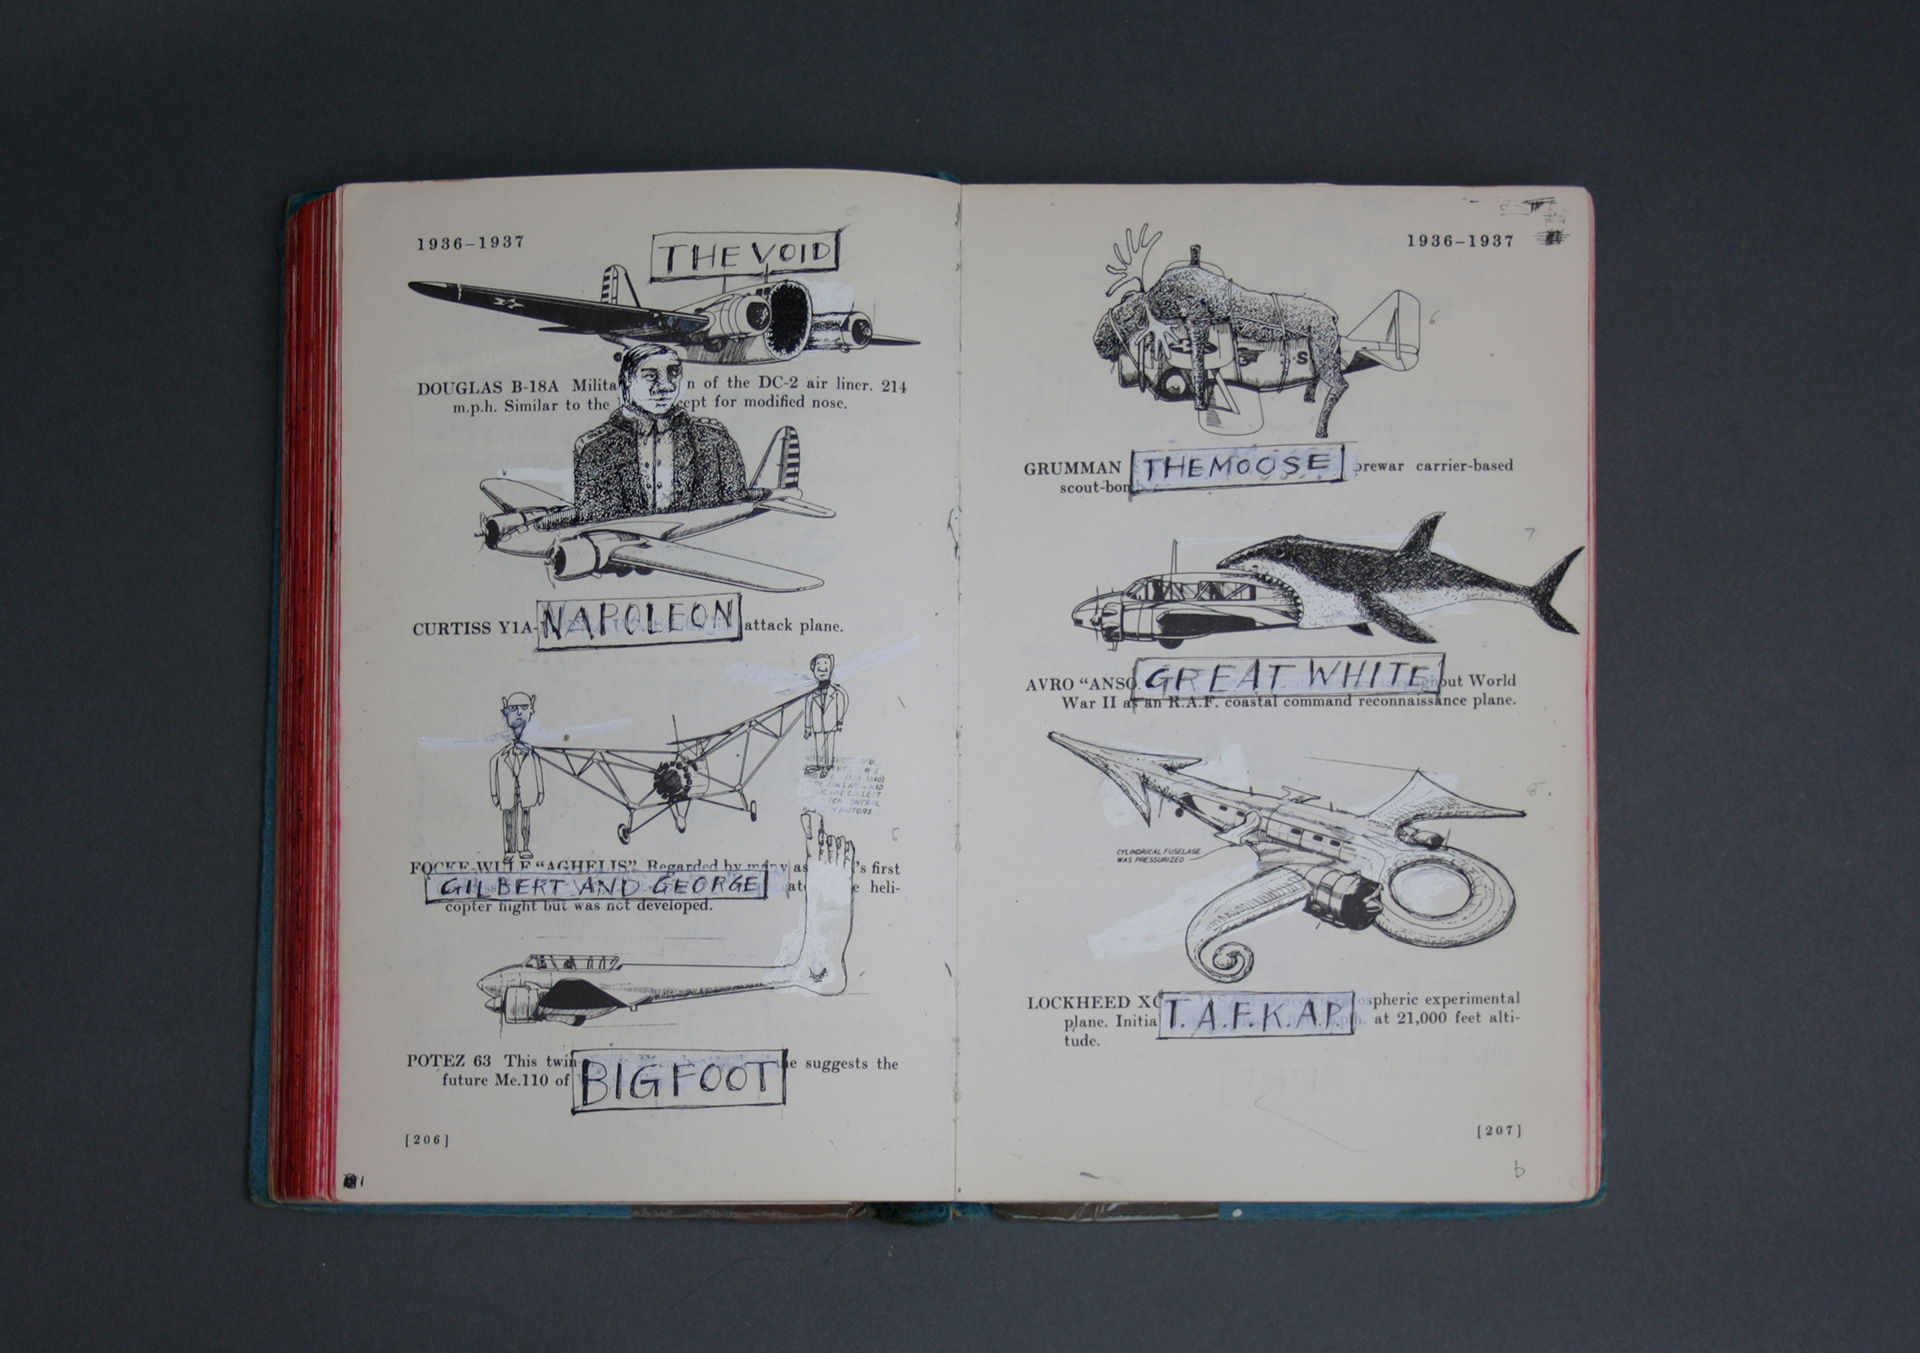 1936–1937
THE VOID
DOUGLAS B-18A Milita n of the DC-2 air liner. 214
m.p.h. Similar to the cept for modified nose.
CURTISS Y1A- NAPOLEON attack plane.
FOCKE-WULF “AGHELIS” Regarded by many as 's first
GILBERT AND GEORGE heli-
copter flight but was not developed.
POTEZ 63 This twin- e suggests the
future Me.110 of BIGFOOT
[206]
1936–1937
GRUMMAN THE MOOSE prewar carrier-based
scout-bom
AVRO “ANSO GREAT WHITE ghout World
War II as an R.A.F. coastal command reconnaissance plane.
CYLINDRICAL FUSELAGE
WAS PRESSURIZED
LOCKHEED XC ospheric experimental
plane. Initia T.A.F.K.A.P. at 21,000 feet alti-
tude.
[207]